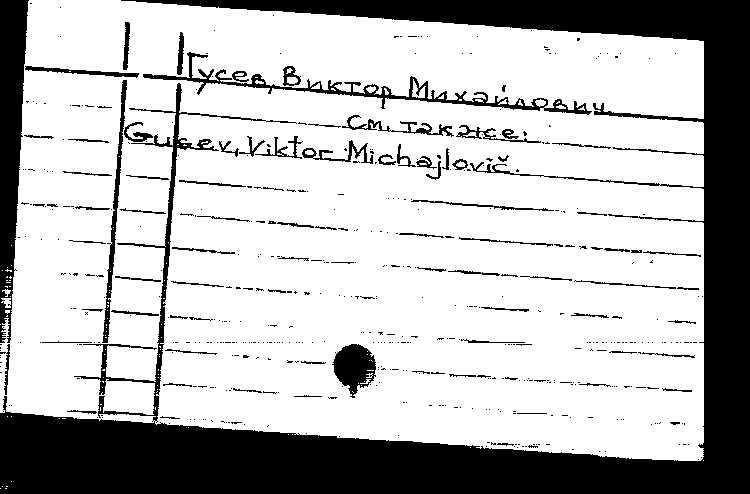 Гусев, Виктор Михайлович
см. также:
Gusev, Viktor Michajlovič.